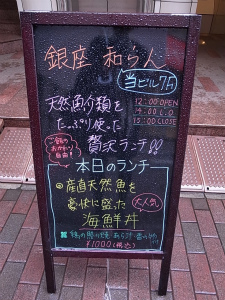 銀座 和らん
当ビル7F
天然魚介類を
たっぷり使った
贅沢ランチ!!
12:00 OPEN
14:00 L.O
15:00 CLOSE
ご飯の
おかわり
自由!
本日のランチ
産直天然魚を
豪快に盛った
大人気
海鮮丼
¥1000(税込)